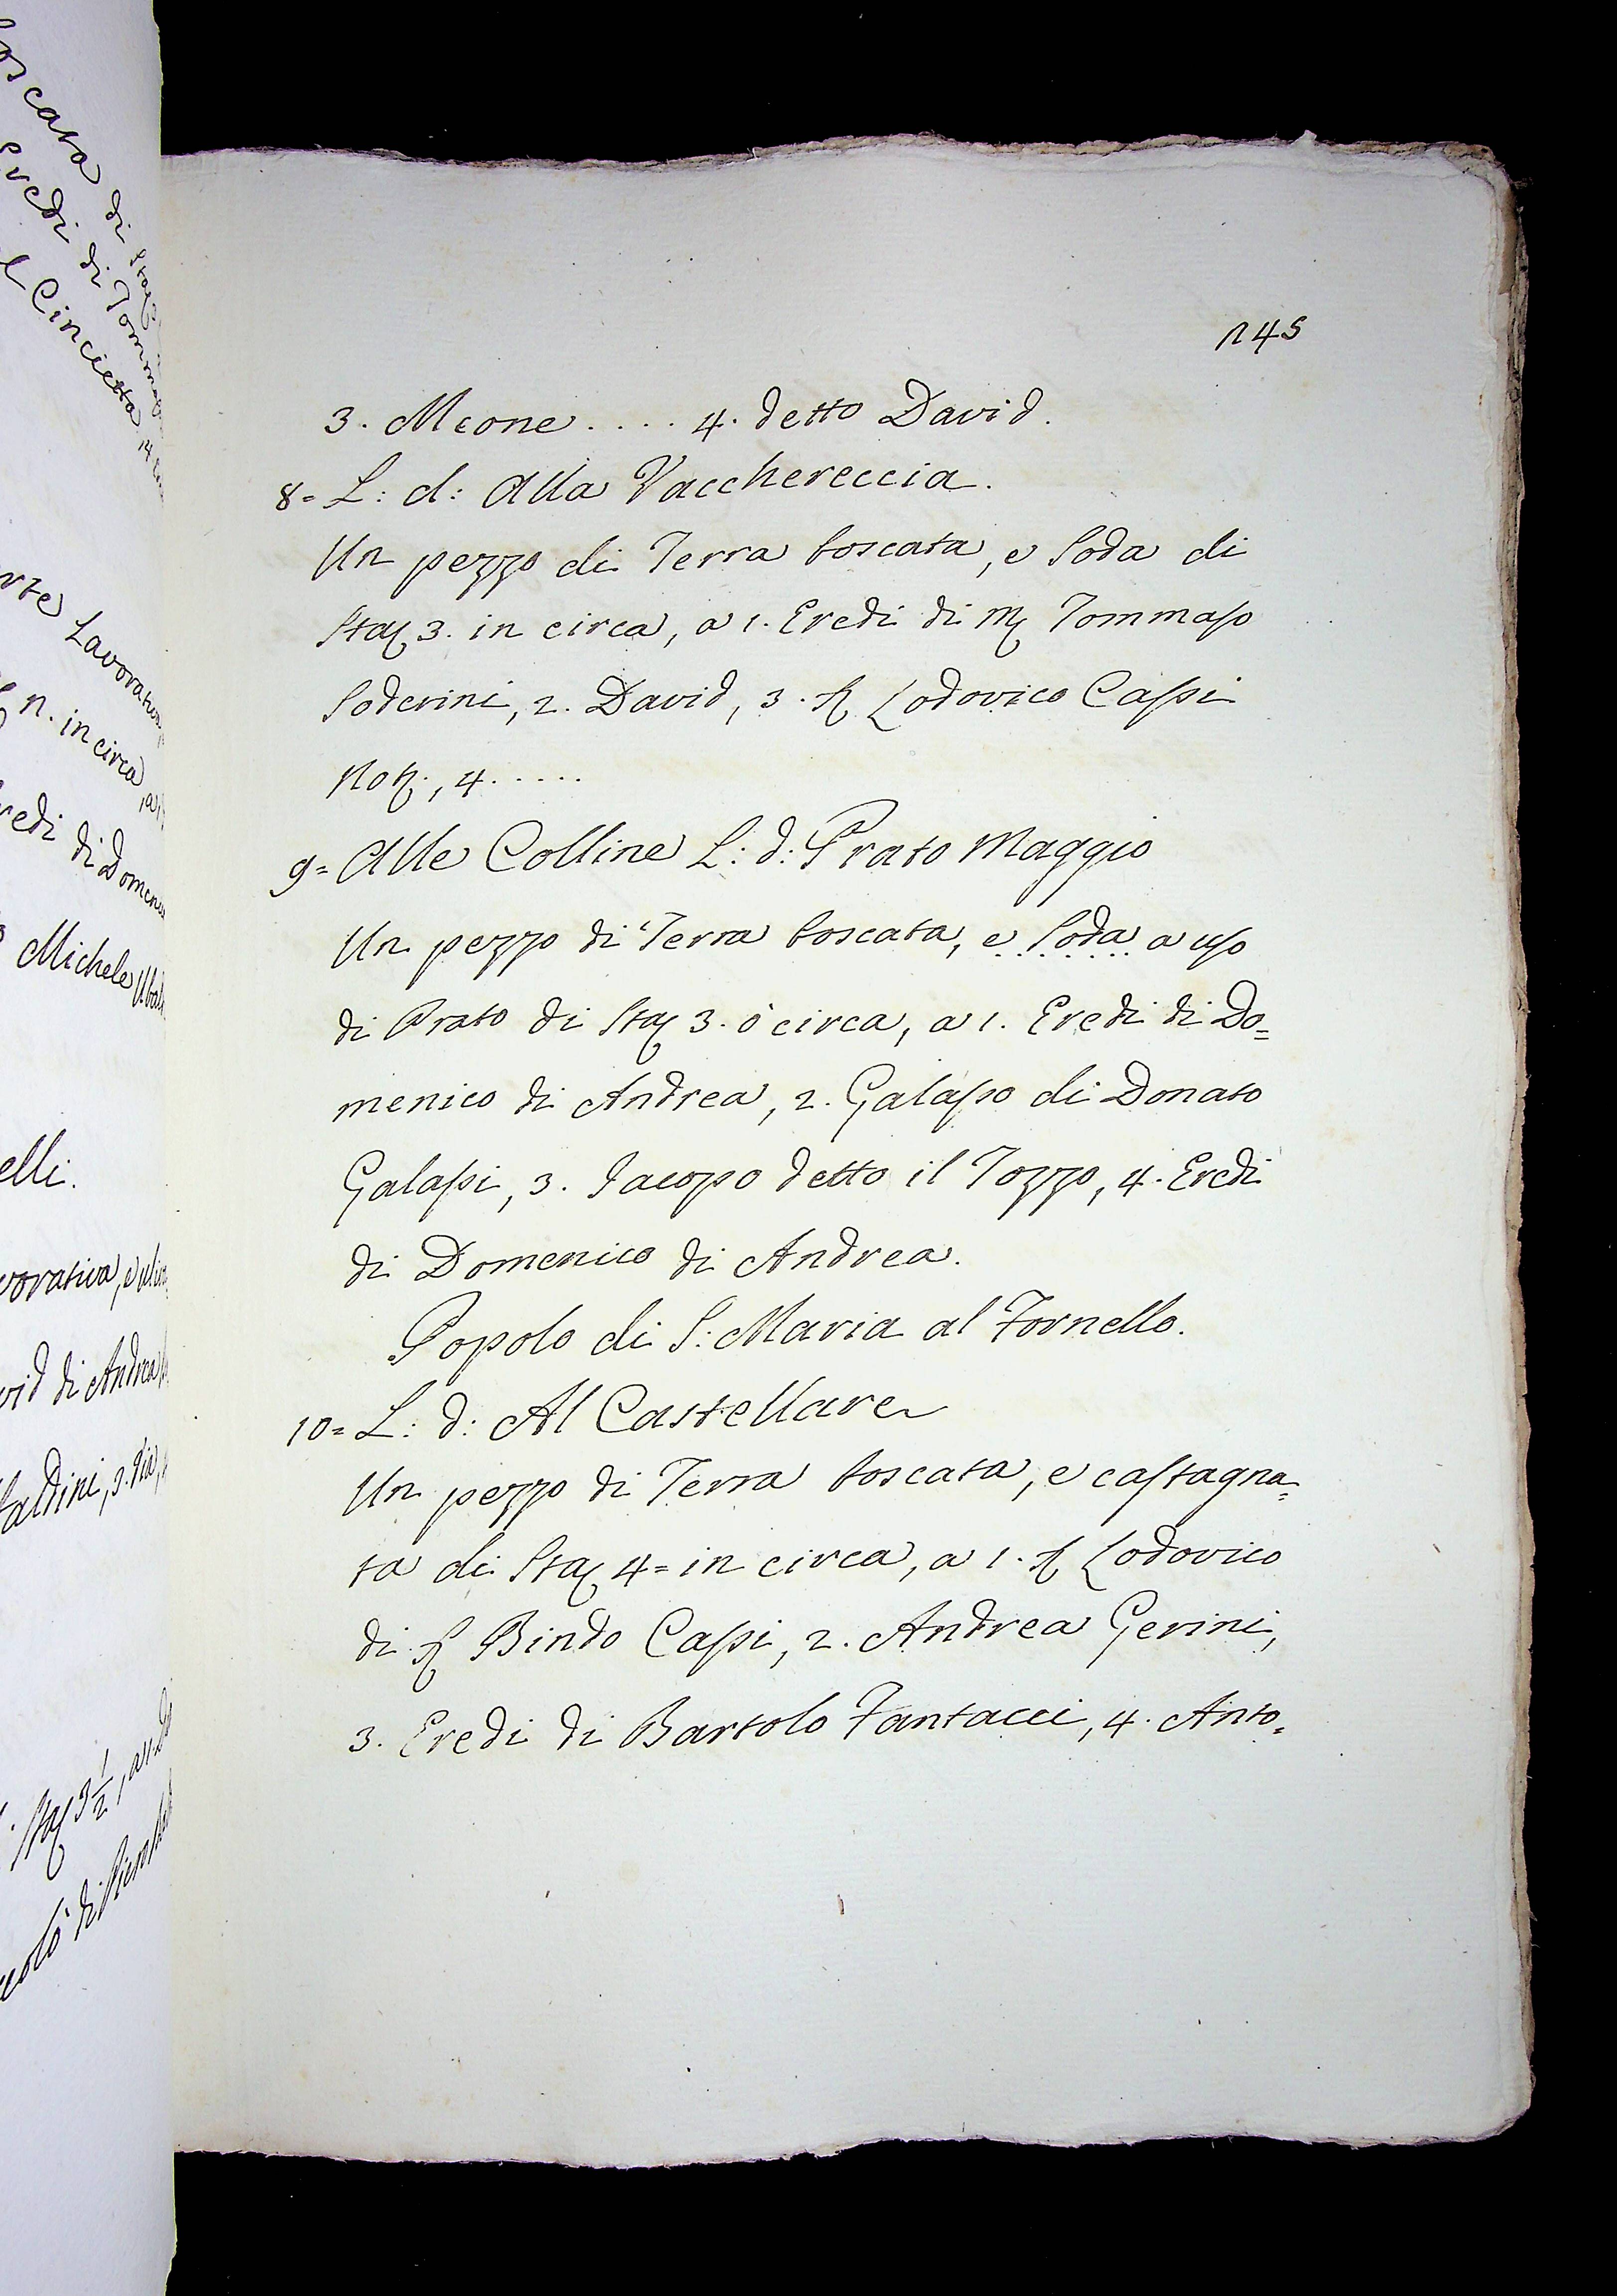 n 45
3. Meone .... 4. detto David.
8= L: d: Alla Vacchereccia.
Un pezzo di Terra boscata, e soda di
Sta 3. in circa, a 1. Eredi di M Tommaso
Soderini, 2. David, 3. S Lodovico Cassi
Not, 4.....
9= Alle Colline L: d: Prato Maggio
Un pezzo di Terra boscata, e soda a uso
di Prato di Sta 3. ò circa, a 1. Eredi di Do=
menico di Andrea, 2. Galasso di Donato
Galassi, 3. Jacopo detto il Tozzo, 4. Eredi
di Domenico di Andrea.
Popolo di S: Maria al Fornello.
10= L: d: Al Castellare
Un pezzo di Terra boscata, e castagna=
ta di Sta 4= in circa, a 1. S Lodovico
di S Bindo Cassi, 2. Andrea Gerini,
3. Eredi di Bartolo Fantacci, 4. Anto=